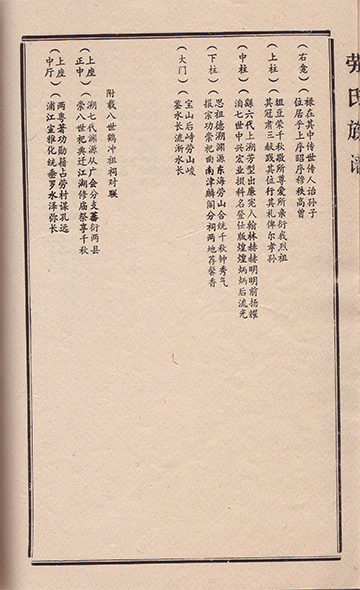 劳氏族谱
（右龛）
禄在其中传世传人诒孙子
位居乎上序昭序穆秩高曾
（上柱）
俎豆荣千秋敬所尊爱所亲衍我烈祖
其冠肃三献践其位行其礼俾尔孝孙
（中柱）
繇六代上溯芳型出廉宪入翰林赫赫明明前扬耀
洎七世中兴宏业掇科名登仕版煌煌炳炳后流光
（下柱）
思祖德溯渊源东海劳山合统千秋钟秀气
报宗功崇祀曲南津麟阁分祠两地荐馨香
（大门）
宝山后峙劳山峻
鉴水长流渐水长
附载八世鹤冲祖祠对联
（上座正中）
溯七代渊源从广会分支蕃衍两县
崇八世祀典迁江湖修庙祭享千秋
（上座中厅）
两粤著功勋籍占劳村谋孔远
浦江宣雅化统垂罗水泽弥长